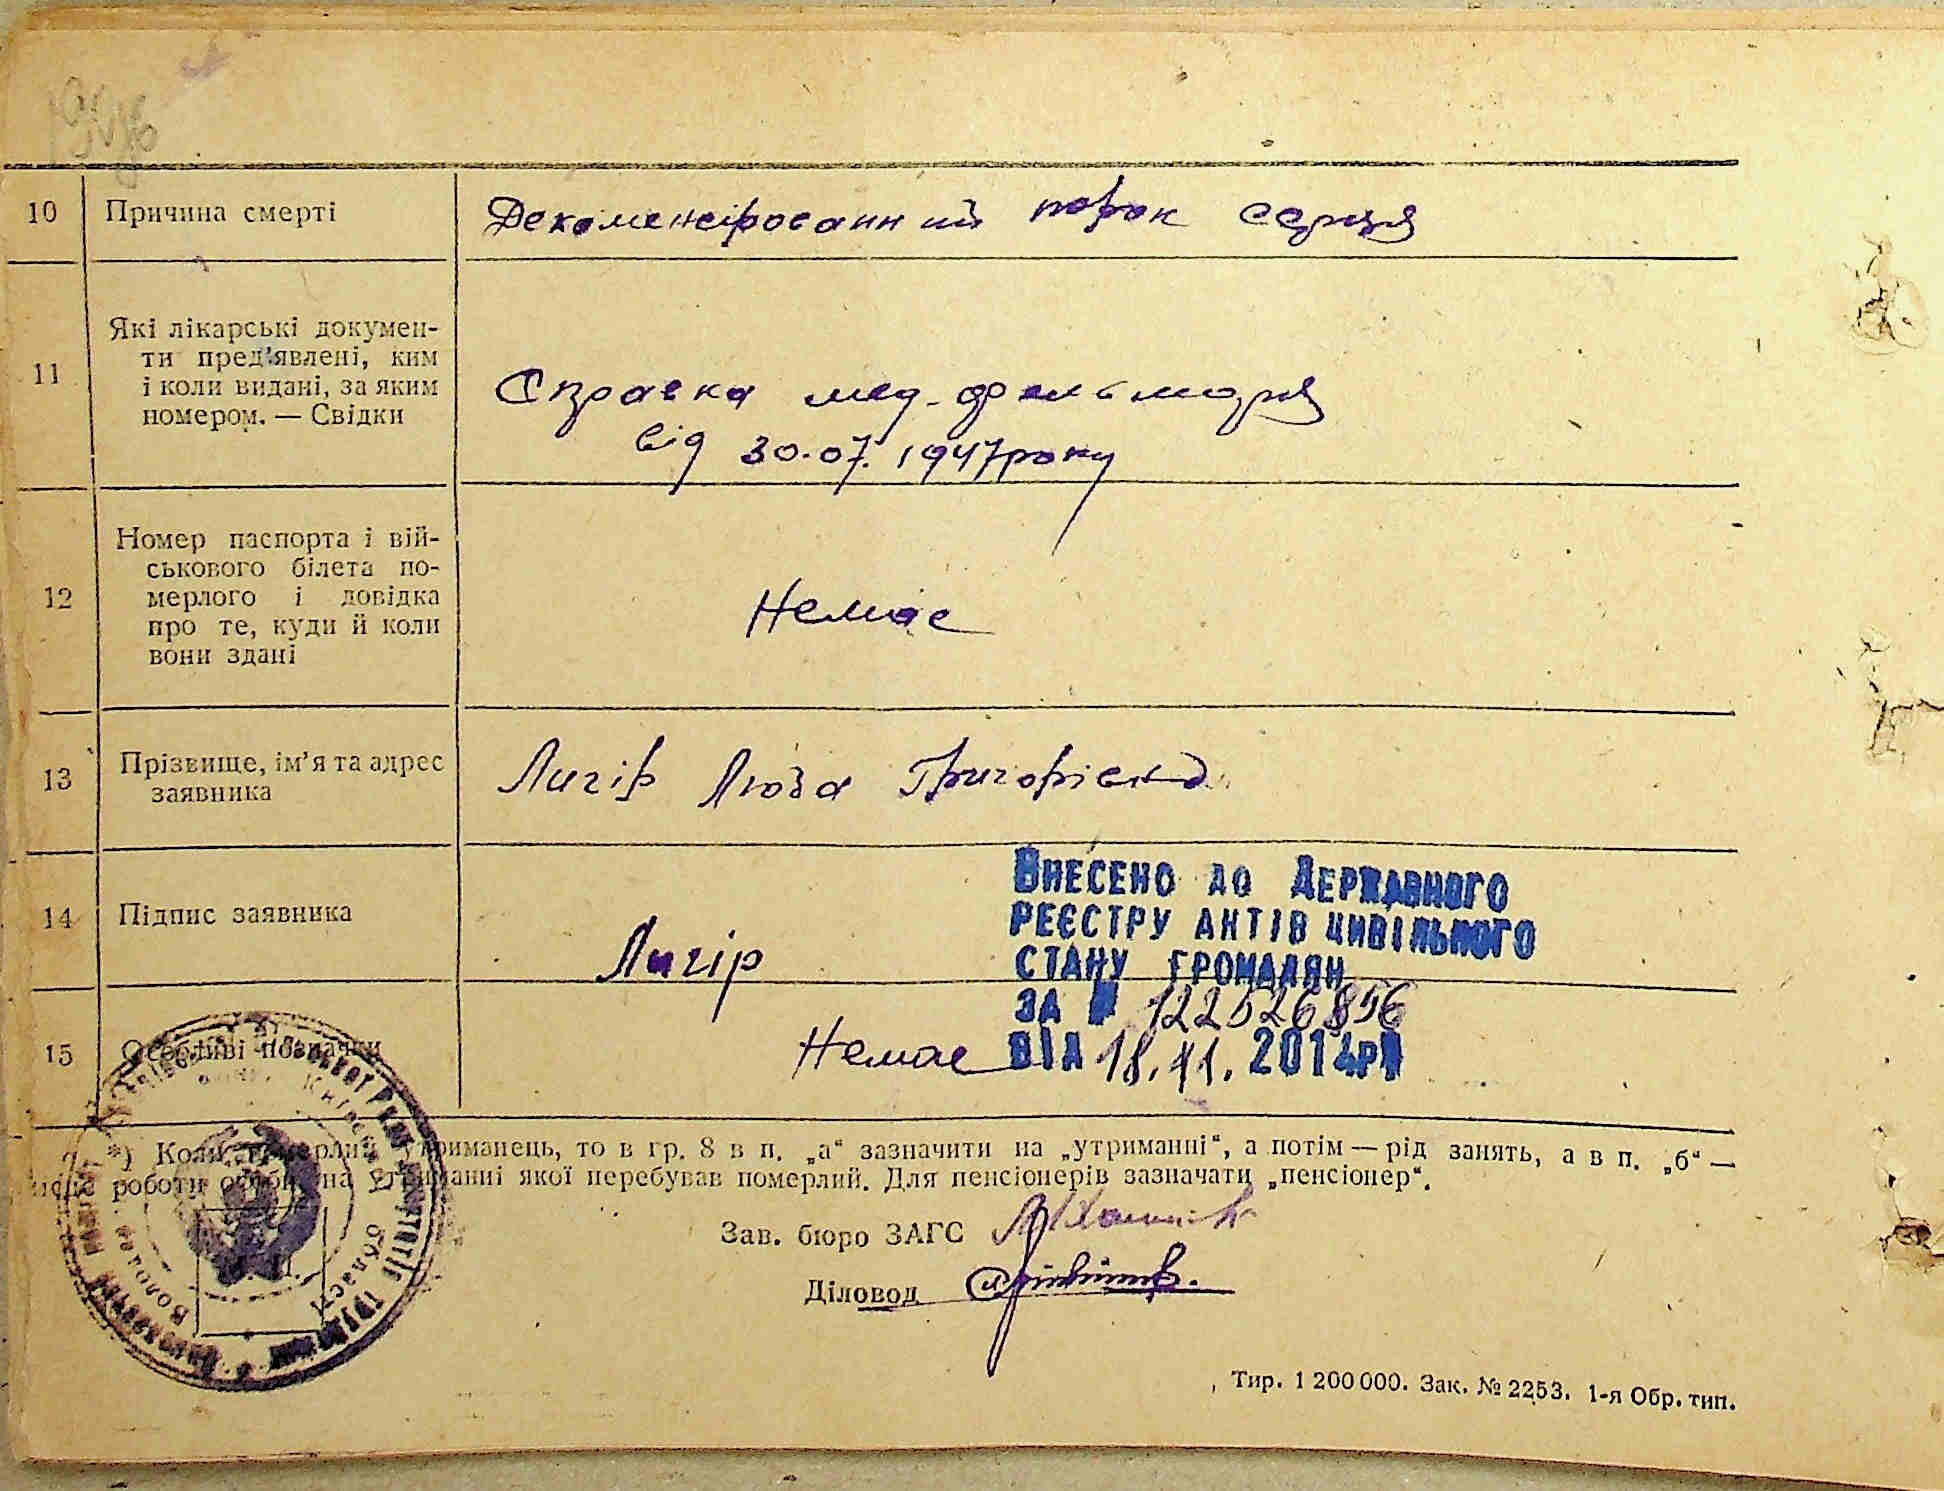 10 Причина смерті Декоменсірованний порок серця
11 Які лікарські докумен-
ти пред'явлені, ким
і коли видані, за яким
номером. — Свідки
Справка мед. фельшаря
від 30.07.1947 року
12 Номер паспорта і вій-
ськового білета по-
мерлого і довідка
про те, куди й коли
вони здані
Немає
13 Прізвище, ім'я та адрес
заявника
Лигір Люба Григорівна
14 Підпис заявника
Лигір
ВНЕСЕНО ДО ДЕРЖАВНОГО
РЕЄСТРУ АКТІВ ЦИВІЛЬНОГО
СТАНУ ГРОМАДЯН
ЗА № 122526896
15 Особливі позначки Немає
ВІД 18.11.2014р
*) Коли померлий утриманець, то в гр. 8 в п. „а“ зазначити на „утриманні“, а потім — рід занять, а в п. „б“ —
місце роботи особи, на утриманні якої перебував померлий. Для пенсіонерів зазначати „пенсіонер“.
Зав. бюро ЗАГС
Діловод
області
Тир. 1 200 000. Зак. № 2253. 1-я Обр. тип.